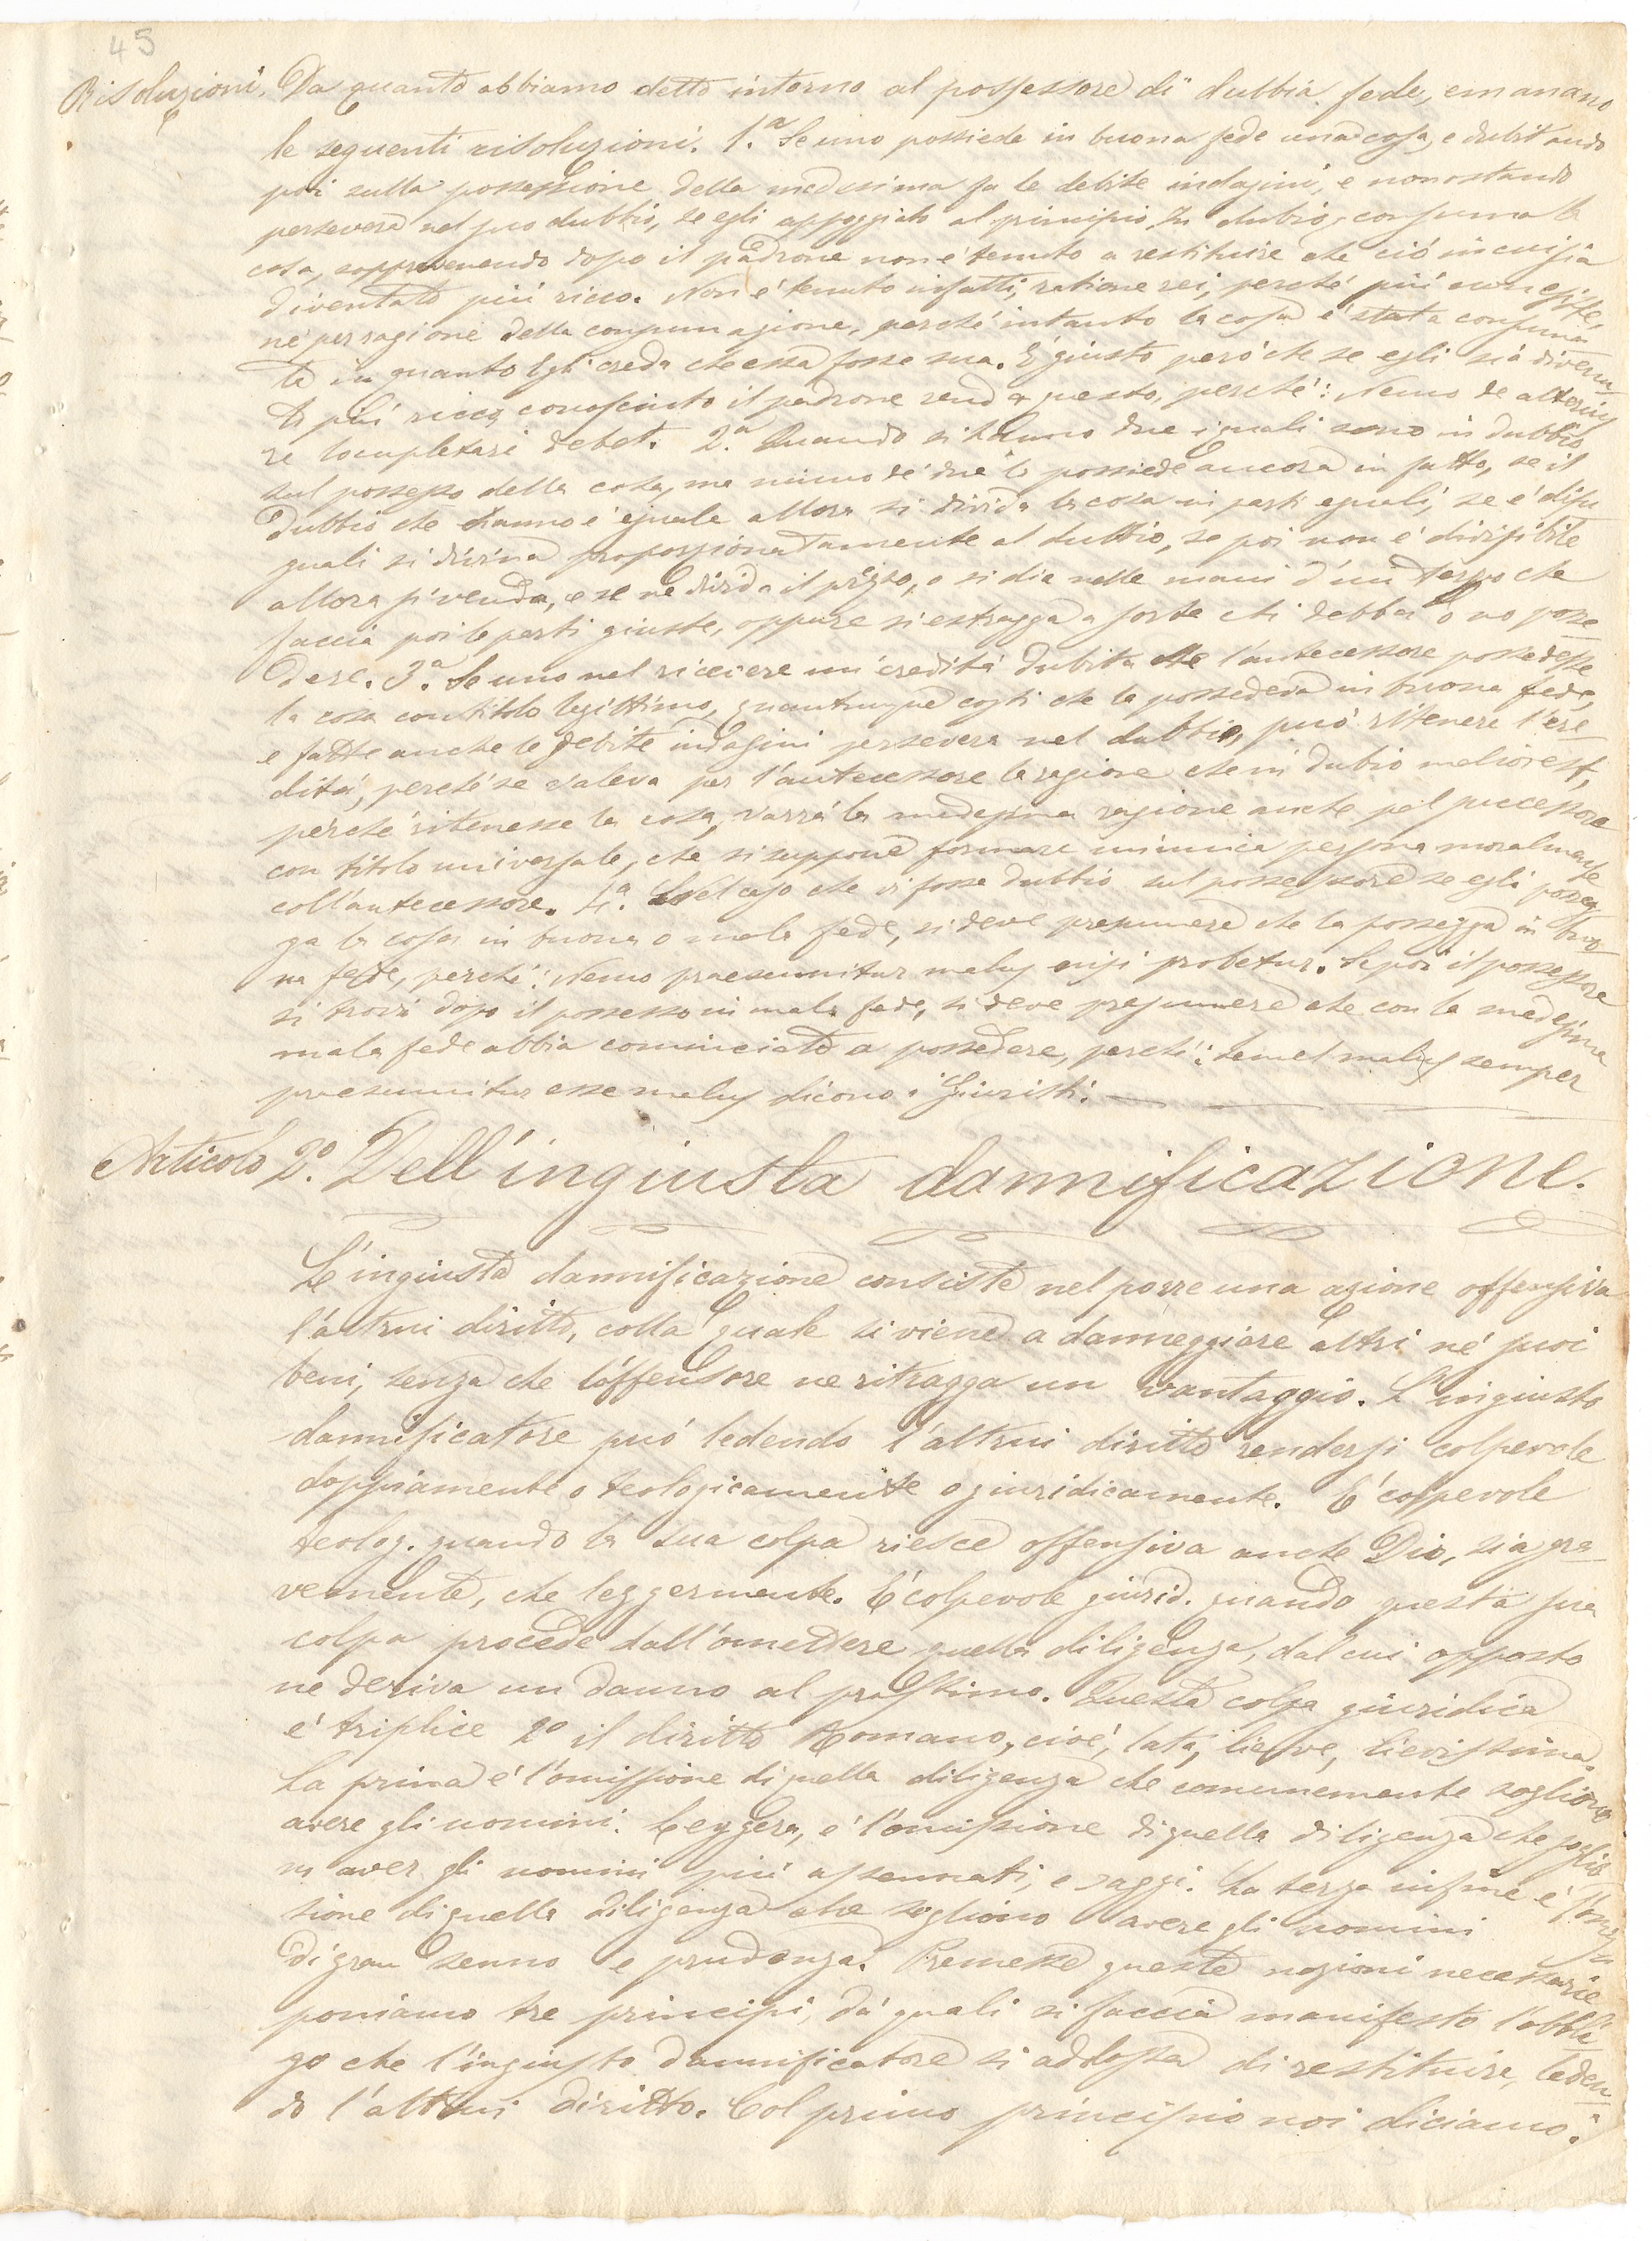 45
Risoluzioni. Da quanto abbiamo detto intorno al possessore di dubbia fede, emanano
le seguenti risoluzioni. 1.ª Se uno possiede in buona fede una cosa, e dubitando
poi sulla possessione della medesima fa le debite indagini, e nonostando
persevera nel suo dubbio, se egli appoggiato al principio In dubio, consuma la
cosa, sopprovenendo dopo il padrone non é tenuto a restituire che ció in cui sia
diventato piú ricco. Non é tenuto infatti, ratione rei, perché piú non esiste,
né per ragione della consumazione, perché intanto la cosa é stata consuma
ta in quanto Egli creda che essa fosse sua. É giusto peró che se egli sia divenu
to piú ricco, conosciuto il padrone renda questo, perché: Nemo de alterius
re locupletari debet. 2.ª Quando si hanno due i quali sono in dubbio
sul possesso della cosa, ma niuno de' due la possiede ancora in fatto, se il
dubbio che hanno é eguale allora si divida la cosa in parti eguali, se é disu
guali si divina proporzionatamente al dubbio, se poi non é divisibile
allora si venda, e se ne divida il prezzo, o si dia nelle mani d'un terzo che
faccia poi le parti giuste, oppure si estragga a sorte chi debba o no posse
dere. 3.ª Se uno nel ricevere un'ereditá dubita che l'antecessore possedesse
la cosa con titolo legittimo, quantunque costi che la possedeva in buona fede,
e fatte anche le debite indagini persevera nel dubbio, puó ritenere l'ere
ditá, perché se valeva per l'antecessore la ragione che in dubio melior est,
perché ritenesse la cosa, varrá la medesima ragione anche pel successore
con titolo universale, che si suppone formare un'unica persona moralmente
coll'antecessore. 4.ª Nel caso che vi fosse dubbio sul possessore se egli posseg
ga la cosa in buona o mala fede, si deve presumere che la possegga in buo
na fede, perché: Nemo praesumitur malus nisi probetur. Se poi il possessore
si trovi dopo il possesso in mala fede, si deve presumere che con la medesima
mala fede abbia cominciato a possedere, perché: semel malus semper
praesumitur esse malus dicono i Giuristi.
Articolo 2º. Dell'ingiusta damnificazione.
L'ingiusta damnificazione consiste nel porre una azione offensiva
l'altrui diritto, colla quale si viene a danneggiare altri né suoi
beni, senza che l'offensore ne ritragga un vantaggio. L'ingiusto
damnificatore puó ledendo l'altrui diritto rendersi colpevole
doppiamente o teologicamente o giuridicamente. É colpevole
teolog. quando la sua colpa riesce offensiva anche Dio, sia gra
vemente, che leggermente. É colpevole giurid. quando questa sua
colpa procede dall'omettere quella diligenza, dal cui opposto
ne deriva un danno al prossimo. Questa colpa giuridica
é triplice 2º il diritto Romano, cioé, lata, lieve, lievissima.
La prima é l'omissione di quella diligenza che comunemente sogliono
avere gli uomini. Leggera, é l'omissione di quella diligenza che soglio
no aver gli uomini piú assennati, e saggi. La terza infine é l'omis
sione di quella diligenza che sogliono avere gli uomini
di gran senno e prudenza. Premesse queste nozioni necessarie
poniamo tre principi, dá quali si faccia manifesto l'obbli
go che l'ingiusto damnificatore si addossa di restituire, leden
do l'altrui diritto. Col primo principio noi diciamo: